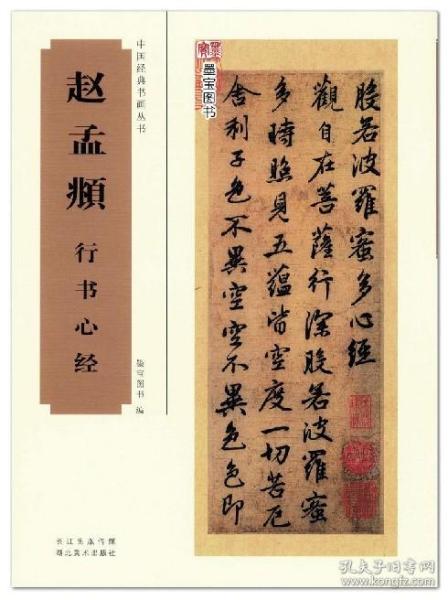 中国经典书画丛书
赵孟頫
行书心经
墨宝图书 编
长江出版传媒
湖北美术出版社
墨宝图书
般若波羅蜜多心經
觀自在菩薩行深般若波羅蜜
多時照見五蘊皆空度一切苦厄
舍利子色不異空空不異色色即
孔夫子旧书网
www.kongfz.com